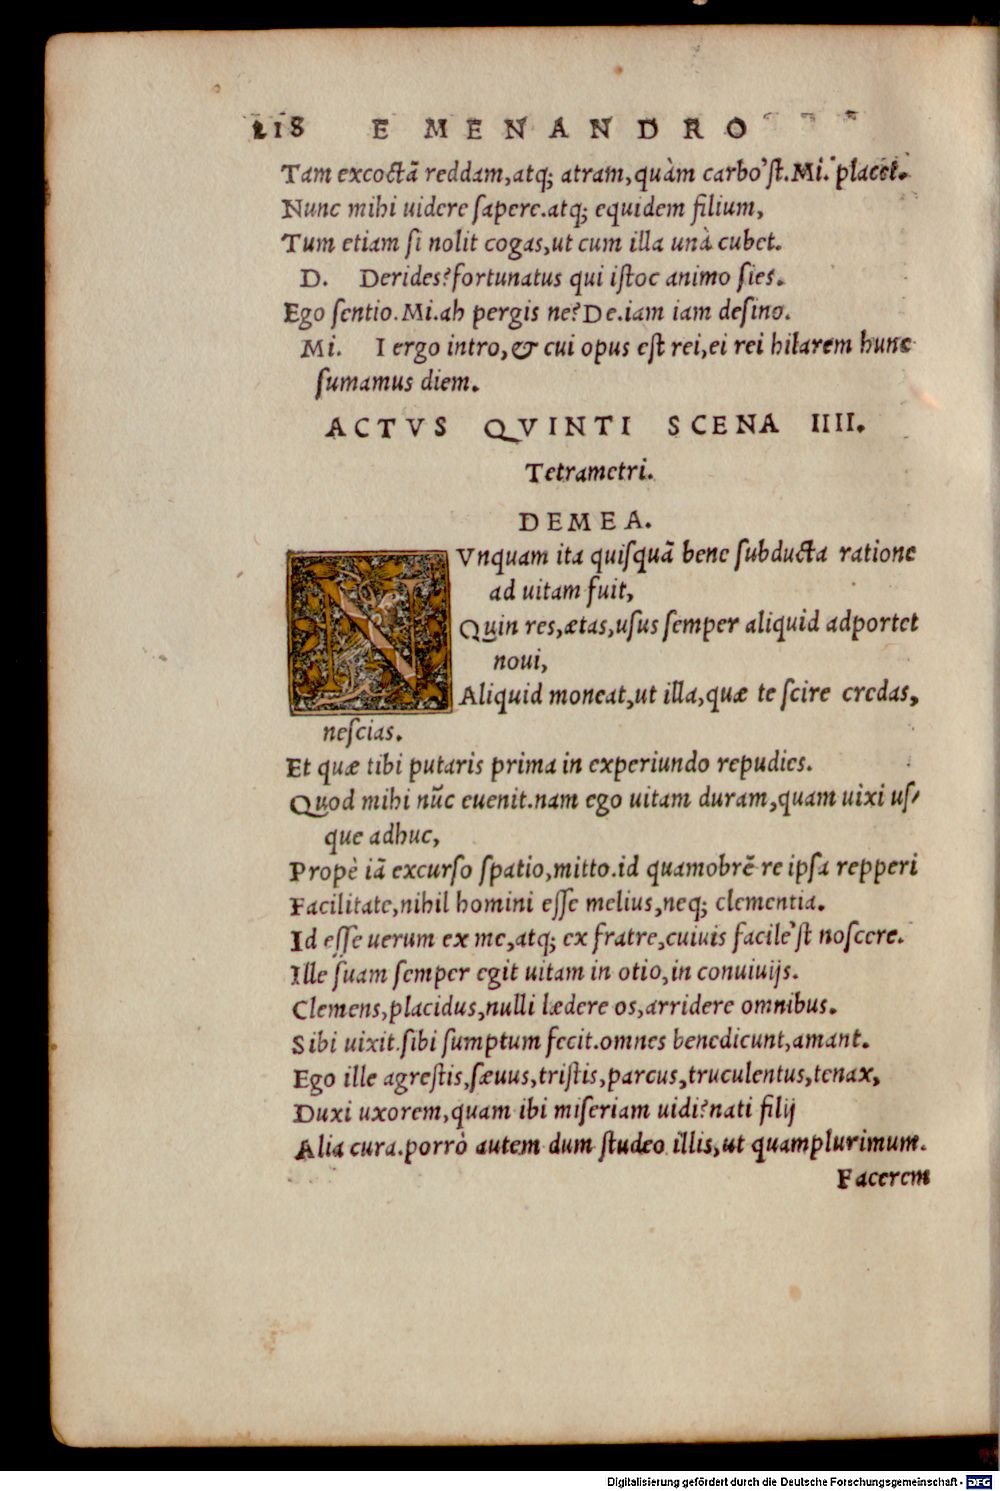 218 E MENANDRO
Tam excoctā reddam,atq; atram,quàm carbo'st.Mi. placet.
Nunc mihi uidere sapere.atq; equidem filium,
Tum etiam si nolit cogas,ut cum illa unà cubet.
D. Derides?fortunatus qui istoc animo sies.
Ego sentio.Mi.ah pergis ne?De.iam iam desino.
Mi. I ergo intro,& cui opus est rei,ei rei hilarem hunc
sumamus diem.
ACTVS QVINTI SCENA IIII.
Tetrametri.
DEMEA.
NVnquam ita quisquā bene subducta ratione
ad uitam fuit,
Quin res,ætas,usus semper aliquid adportet
noui,
Aliquid moneat,ut illa,quæ te scire credas,
nescias.
Et quæ tibi putaris prima in experiundo repudies.
Quod mihi nūc euenit.nam ego uitam duram,quam uixi us-
que adhuc,
Propè iā excurso spatio,mitto.id quamobrē re ipsa repperi
Facilitate,nihil homini esse melius,neq; clementia.
Id esse uerum ex me,atq; ex fratre,cuiuis facile'st noscere.
Ille suam semper egit uitam in otio,in conuiuijs.
Clemens,placidus,nulli lædere os,arridere omnibus.
Sibi uixit.sibi sumptum fecit.omnes benedicunt,amant.
Ego ille agrestis,sæuus,tristis,parcus,truculentus,tenax,
Duxi uxorem,quam ibi miseriam uidi?nati filij
Alia cura.porrò autem dum studeo illis,ut quamplurimum.
Facerem
Digitalisierung gefördert durch die Deutsche Forschungsgemeinschaft - DFG